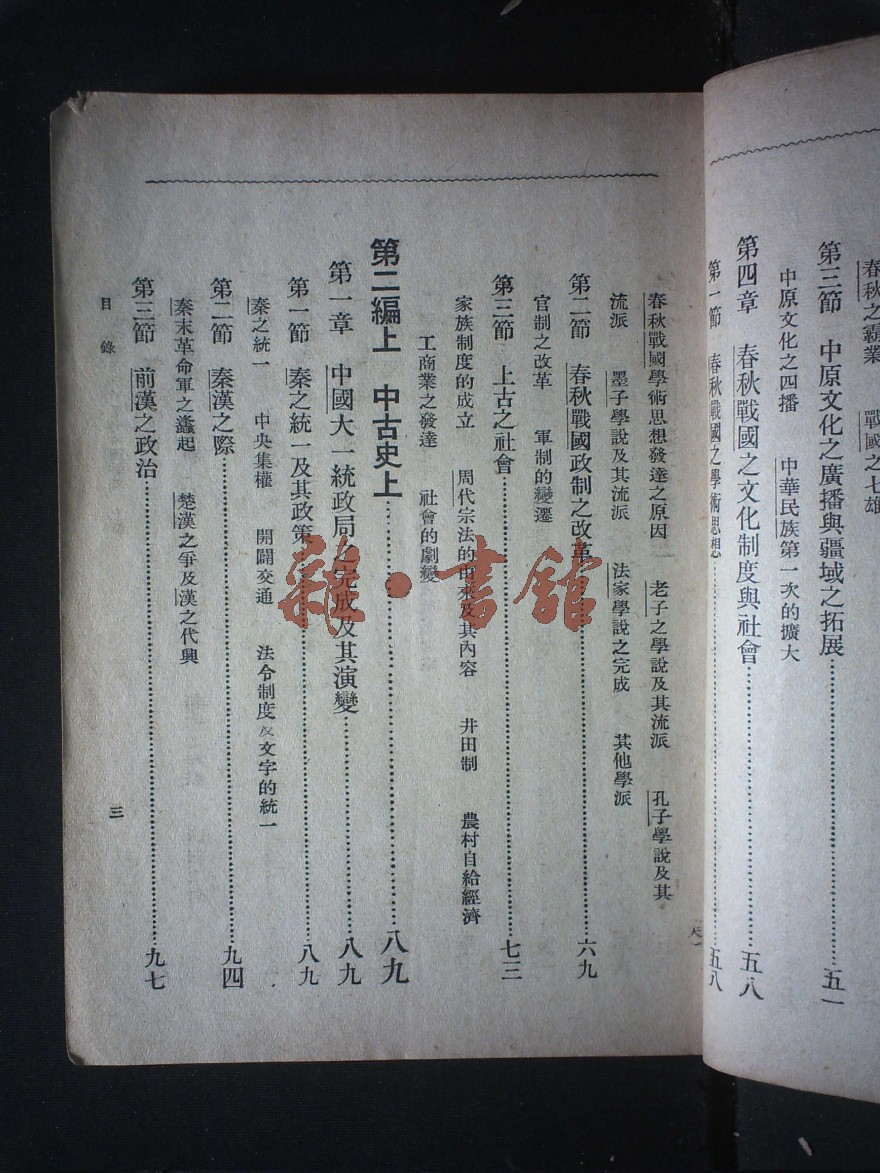 春秋之霸業　戰國之七雄
第三節　中原文化之廣播與疆域之拓展……五一
中原文化之四播　中華民族第一次的擴大
第四章　春秋戰國之文化制度與社會……五八
第一節　春秋戰國之學術思想……五八
春秋戰國學術思想發達之原因　老子之學說及其流派　孔子學說及其
流派　墨子學說及其流派　法家學說之完成　其他學派
第二節　春秋戰國政制之改革……六九
官制之改革　軍制的變遷
第三節　上古之社會……七三
家族制度的成立　周代宗法的由來及其內容　井田制　農村自給經濟
工商業之發達　社會的劇變
第二編上　中古史上……八九
第一章　中國大一統政局之完成及其演變……八九
第一節　秦之統一及其政策……八九
秦之統一　中央集權　開闢交通　法令制度及文字的統一
第二節　秦漢之際……九四
秦末革命軍之蠭起　楚漢之爭及漢之代興
第三節　前漢之政治……九七
目錄
三
雜·書館